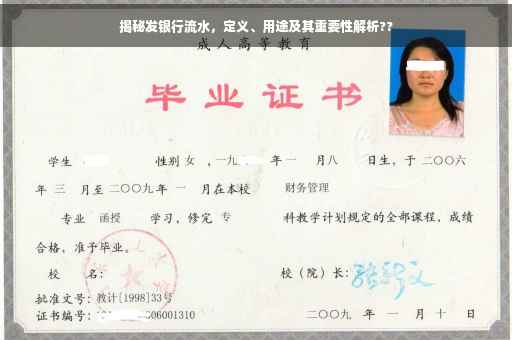 揭秘发银行流水，定义、用途及其重要性解析??
成人高等教育
毕业证书
学生 性别 女 ，一九 年 一 月八 日生，于 二〇〇六
年 三 月至 二〇〇九 年 一 月在本校 财务管理
专业 函授 学习，修完 专 科教学计划规定的全部课程，成绩
合格，准予毕业。
校 名： 校（院）长：
批准文号：教计[1998]33号
证书编号： 06001310 二〇〇九 年 一 月 十 日